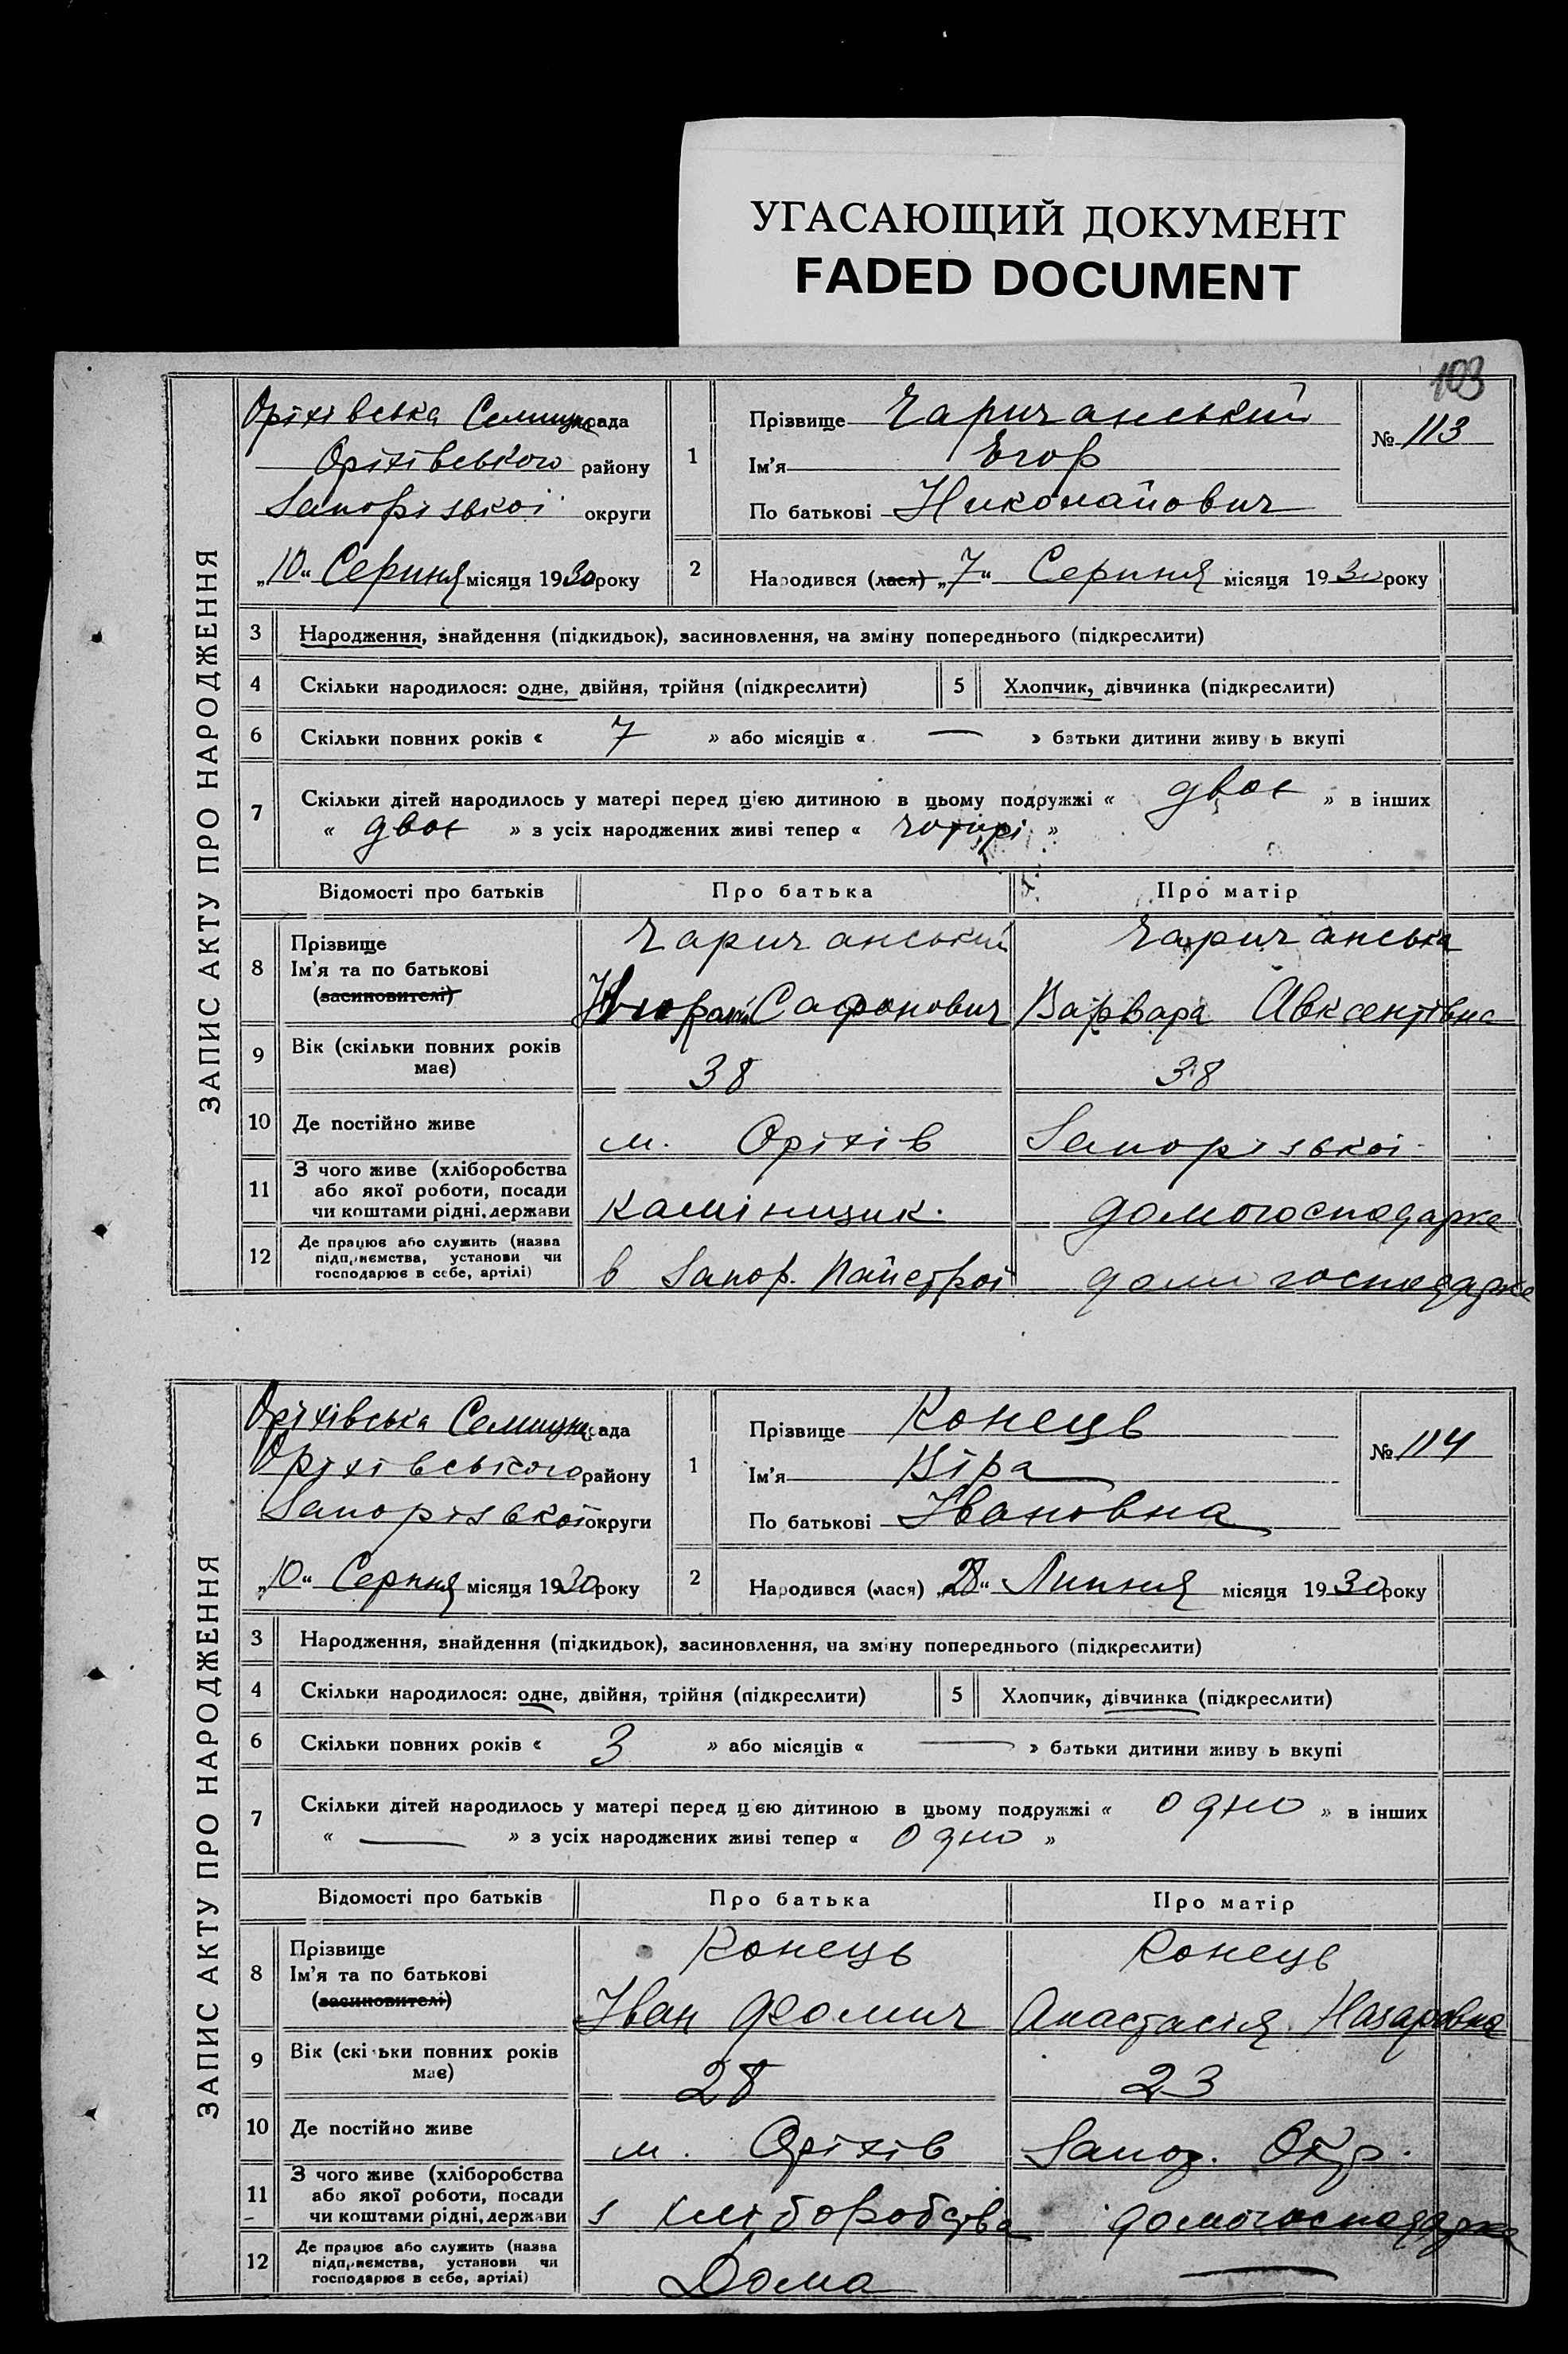 УГАСАЮЩИЙ ДОКУМЕНТ
FADED DOCUMENT
103
ЗАПИС АКТУ ПРО НАРОДЖЕННЯ
Оріхівська Селищна рада
Оріхівського району
Запорізької округи
„10“ Серпня місяця 1930 року
1
Прізвище Чаричанський
Ім'я Єгор
По батькові Николайович
№ 113
2
Народився (лася) „7“ Серпня місяця 1930 року
3 Народження, знайдення (підкидьок), засиновлення, на зміну попереднього (підкреслити)
4 Скільки народилося: одне, двійня, трійня (підкреслити) 5 Хлопчик, дівчинка (підкреслити)
6 Скільки повних років « 7 » або місяців « — » батьки дитини живу ь вкупі
7 Скільки дітей народилось у матері перед цією дитиною в цьому подружжі « двоє » в інших
« двоє » з усіх народжених живі тепер « чотирі »
Відомості про батьків Про батька Про матір
8 Прізвище
Ім'я та по батькові
(засиновителі)
Чаричанський Чаричанська
Сафонович Варвара Авксентівна
9 Вік (скільки повних років має) 38 38
10 Де постійно живе м. Оріхів Запорізької
11 З чого живе (хліборобства
або якої роботи, посади
чи коштами рідні, держави
камінщик. домогосподарка
12 Де працює або служить (назва
підприємства, установи чи
господарює в себе, артілі)
в Запор. домогосподарка
ЗАПИС АКТУ ПРО НАРОДЖЕННЯ
Оріхівська Селищна рада
Оріхівського району
Запорізької округи
„10“ Серпня місяця 1930 року
1
Прізвище Конець
Ім'я Віра
По батькові Івановна
№ 114
2
Народився (лася) „28“ Липня місяця 1930 року
3 Народження, знайдення (підкидьок), засиновлення, на зміну попереднього (підкреслити)
4 Скільки народилося: одне, двійня, трійня (підкреслити) 5 Хлопчик, дівчинка (підкреслити)
6 Скільки повних років « 3 » або місяців « — » батьки дитини живу ь вкупі
7 Скільки дітей народилось у матері перед цією дитиною в цьому подружжі « одно » в інших
« — » з усіх народжених живі тепер « одно »
Відомості про батьків Про батька Про матір
8 Прізвище
Ім'я та по батькові
(засиновителі)
Конець Конець
Іван Фомич Анастасія Назаровна
9 Вік (скільки повних років має) 28 23
10 Де постійно живе м. Оріхів Запор. Окр.
11 З чого живе (хліборобства
або якої роботи, посади
чи коштами рідні, держави
з хліборобства домогосподарка
12 Де працює або служить (назва
підприємства, установи чи
господарює в себе, артілі)
Дома —